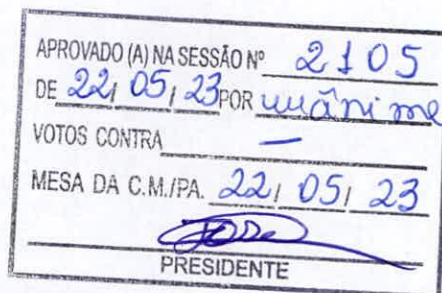 APROVADO (A) NA SESSÃO Nº 2105
DE 22, 05, 23 POR unânime
VOTOS CONTRA —
MESA DA C.M./PA. 22, 05, 23
PRESIDENTE